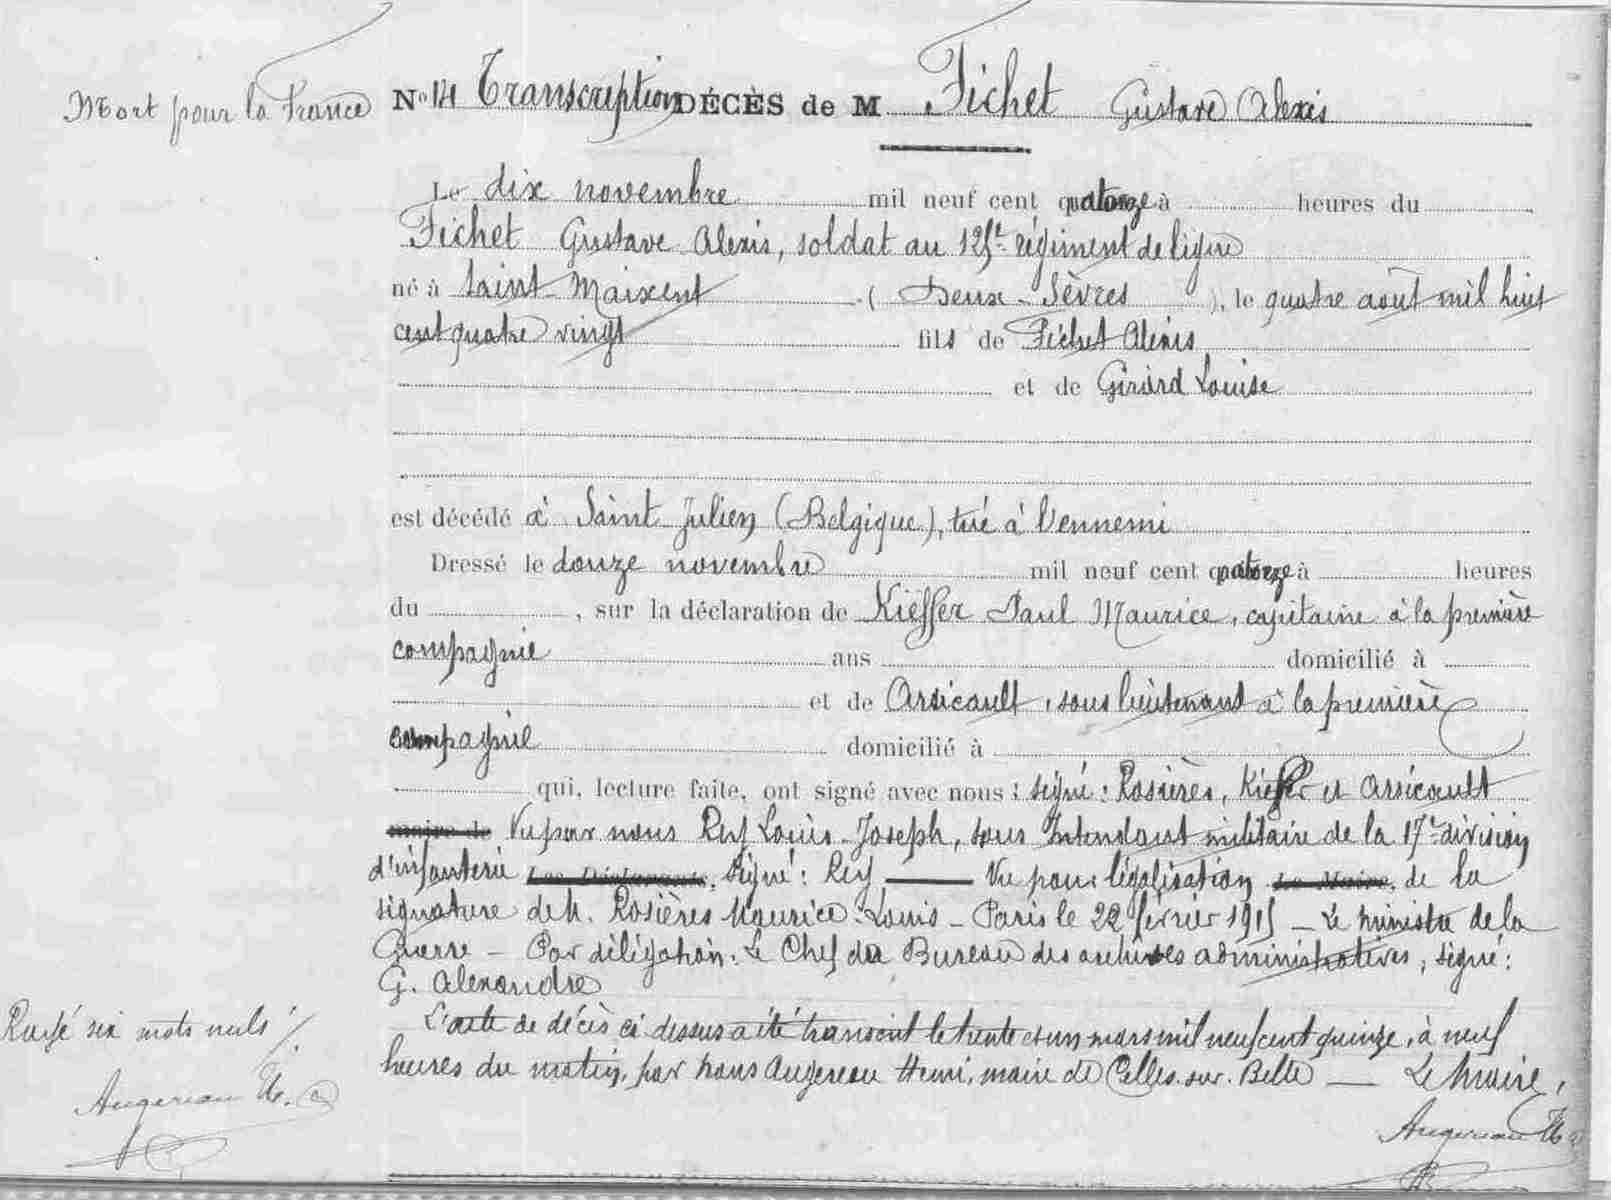 Mort pour la France
No 14 Transcription DÉCÈS de M Fichet Gustave Alexis
Le dix novembre mil neuf cent quatorze à heures du
Fichet Gustave Alexis, soldat au 125e régiment de ligne
né à Saint-Maixent (Deux-Sèvres), le quatre août mil huit
cent quatre vingt fils de Fichet Alexis
et de Girard Louise
est décédé à Saint Julien (Belgique), tué à l'ennemi
Dressé le douze novembre mil neuf cent quatorze à heures
du , sur la déclaration de Kieffer Paul Maurice, capitaine à la première
compagnie ans domicilié à
et de Arsicault, sous lieutenant à la première
compagnie domicilié à
qui, lecture faite, ont signé avec nous : signé : Rosières, Kieffer et Arsicault
maire de Vu par nous Rey Louis-Joseph, sous Intendant militaire de la 17e division
d'infanterie Les Déclarants, signé : Rey — Vu pour légalisation Le Maire, de la
signature de M. Rosières Maurice-Louis - Paris le 22 février 1915 - Le ministre de la
Guerre - Par délégation. Le Chef du Bureau des archives administratives, signé :
G. Alexandre
L'acte de décès ci dessus a été transcrit le trente et un mars mil neuf cent quinze, à neuf
heures du matin, par nous Augereau Henri, maire de Celles-sur-Belle — Le Maire,
Rayé six mots nuls
Augereau H.
Augereau H.